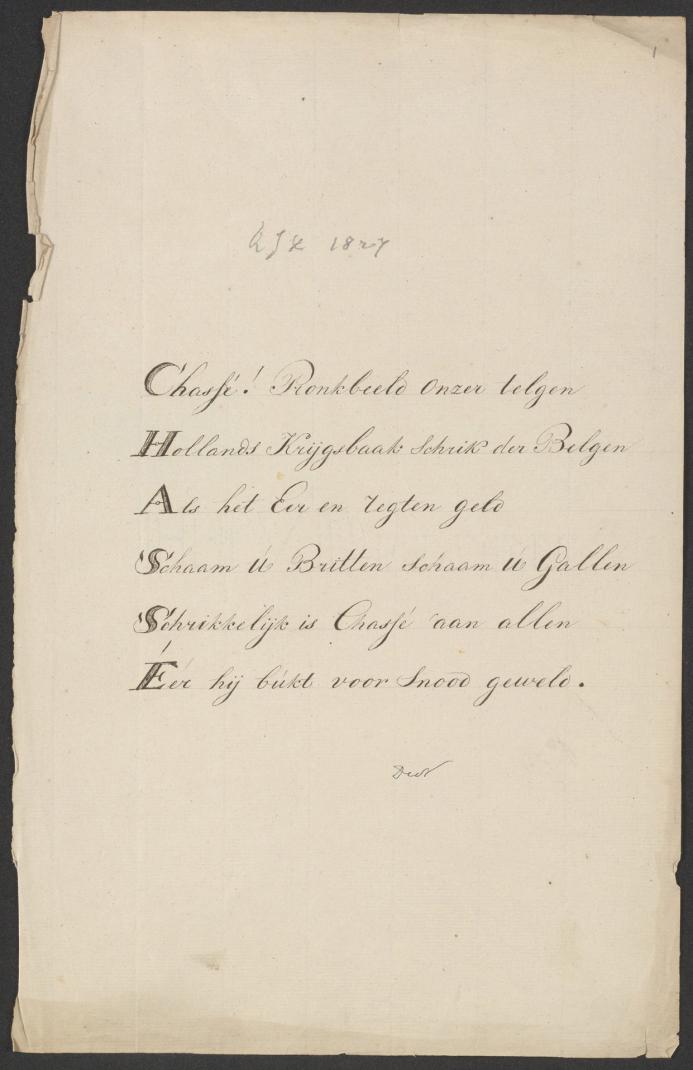 1
1827
Chassé! Pronkbeeld onzer telgen
Hollands Krijgsbaak schrik der Belgen
Als het Eer en regten geld
Schaam ú Britten schaam ú Gallen
Schrikkelijk is Chassé aan allen
Éer hij búkt voor Snood geweld.